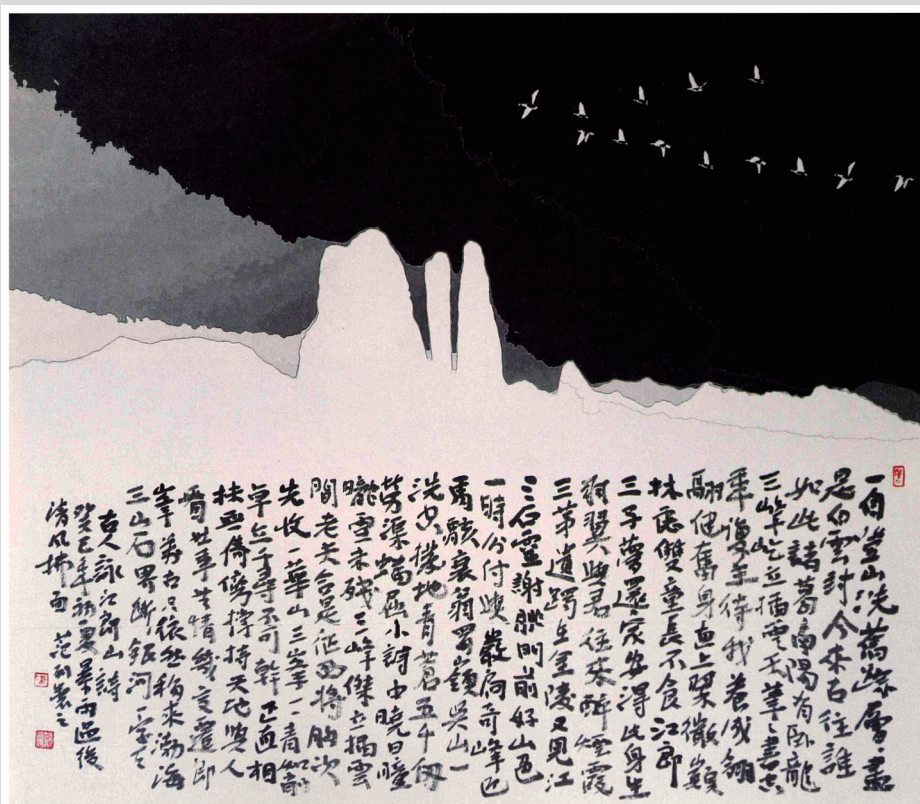 一自登山洗舊蹤層層盡
是白雲封今來古往誰
如此諸葛南陽有臥龍
三峰屹立插雲天筆筆書空
年復年待我養成翎
翮健奮身直上翠微巔
林慮雙童長不食江郎
三子夢還家安得此身生
羽翼與君往來醉煙霞
三茅遺躅在金陵又見江
三石靈謝朓門前好山色
一時分付與巖扃奇峰已
馬駭衰翁蜀嶺吳山一
洗空拔地青蒼五千仞
勞渠蟠屈小詩中曉日曈
曨雪未殘三峰傑立插雲
間老夫合是征西將胸次
先收一華山三峯一一青如削
卓立千尋不可幹正直相
扶無倚傍撐持天地與人
看世事生情幾變遷郎
峯萬古只依然移求渤海
三山石界斷銀河一字天
古人詠江郎山詩
癸巳年初夏暴雨過後
清風拂面 范